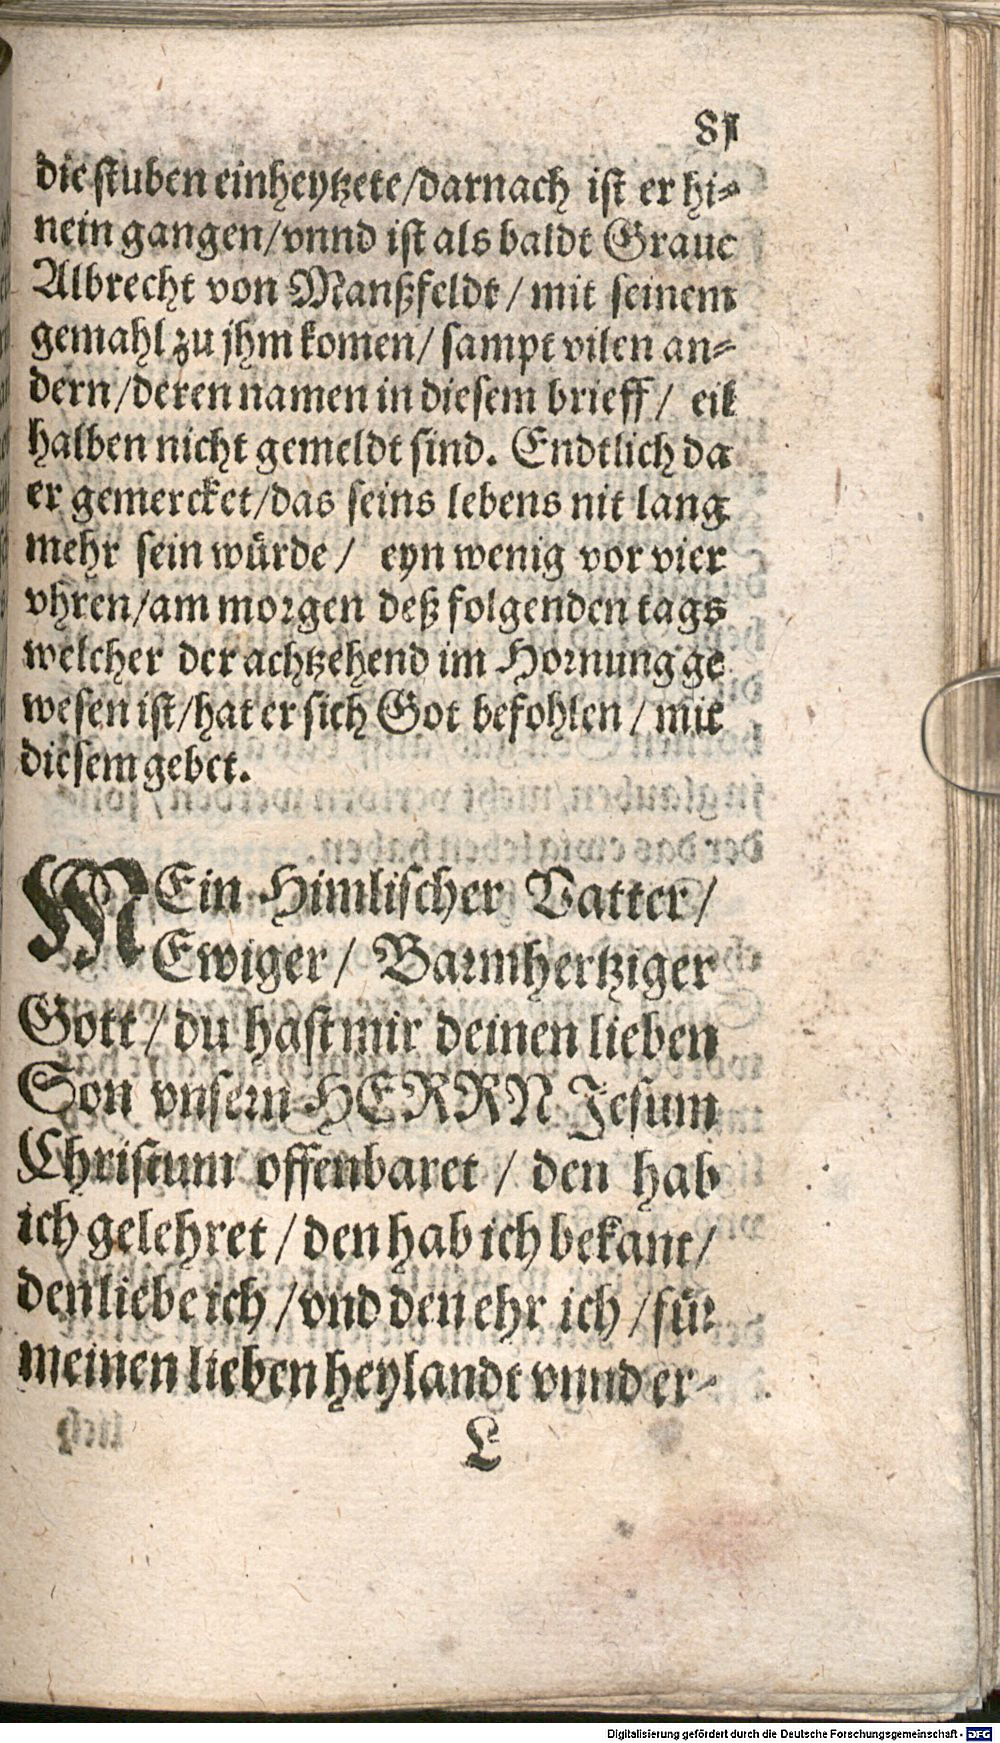 81
die stuben einheytzete/darnach ist er hi⸗
nein gangen/vnnd ist als baldt Graue
Albrecht von Manßfeldt/ mit seinem
gemahl zu jhm komen/ sampt vilen an⸗
dern/deren namen in diesem brieff/ eil
halben nicht gemeldt sind. Endtlich da
er gemercket/das seins lebens nit lang
mehr sein würde/ eyn wenig vor vier
vhren/am morgen deß folgenden tags
welcher der achtzehend im Hornung ge
wesen ist/hat er sich Got befohlen/ mit
diesem gebet.
MEin Himlischer Vatter/
Ewiger/ Barmhertziger
Gott/ du hast mir deinen lieben
Son vnsern HERRN Jesum
Christum offenbaret/ den hab
ich gelehret/ den hab ich bekant/
den liebe ich/ vnd den ehr ich/ für
meinen lieben heylandt vnnd er⸗
L
Digitalisierung gefördert durch die Deutsche Forschungsgemeinschaft - DFG